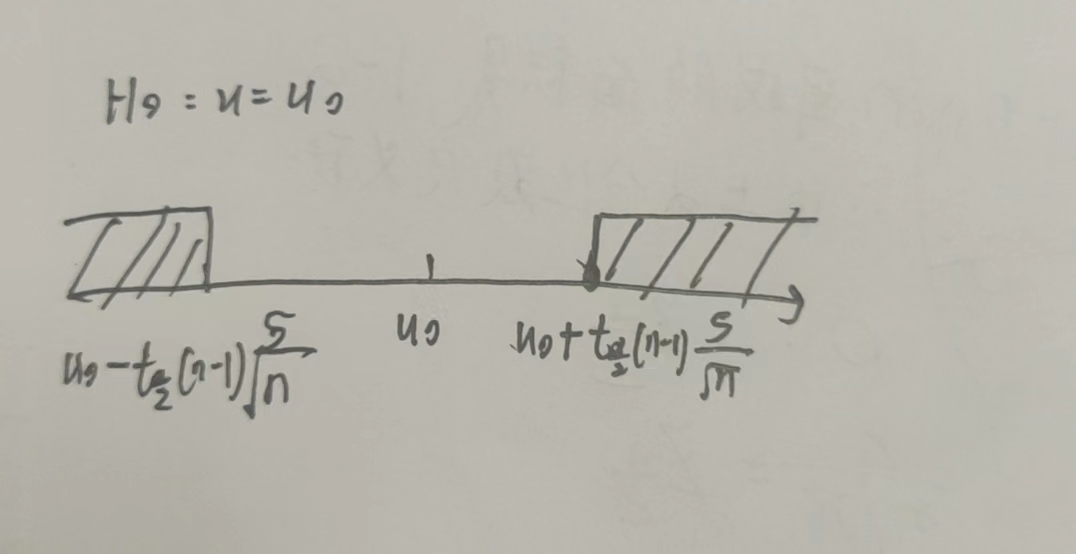 H₀ : u = u₀
u₀ - t_{α/2}(n-1)√(S/n)
u₀
u₀ + t_{α/2}(n-1) S/√n